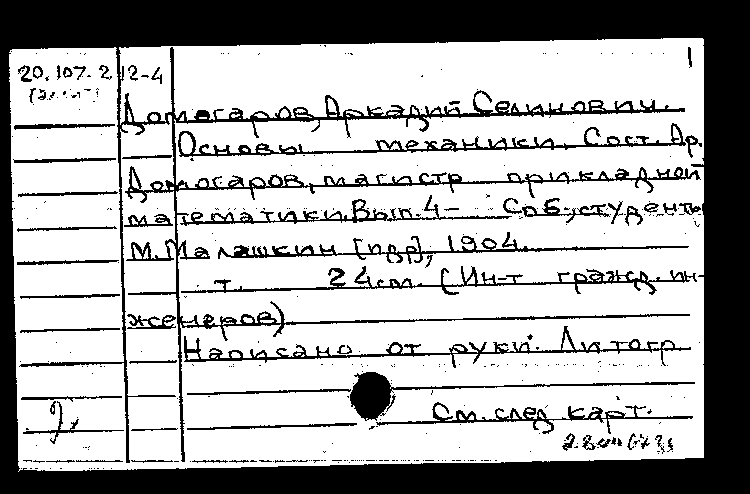 1
20.107.2.12-4
Домогаров, Аркадий Селинович.
Основы механики. Сост. Ар.
Домогаров, магистр прикладной
математики. Вып. 4- Спб., студенты
М. Малашкин [пдр], 1904.
т. 24 см. (Ин-т гражд. ин-
женеров)
Написано от руки. Литогр
См. след. карт.